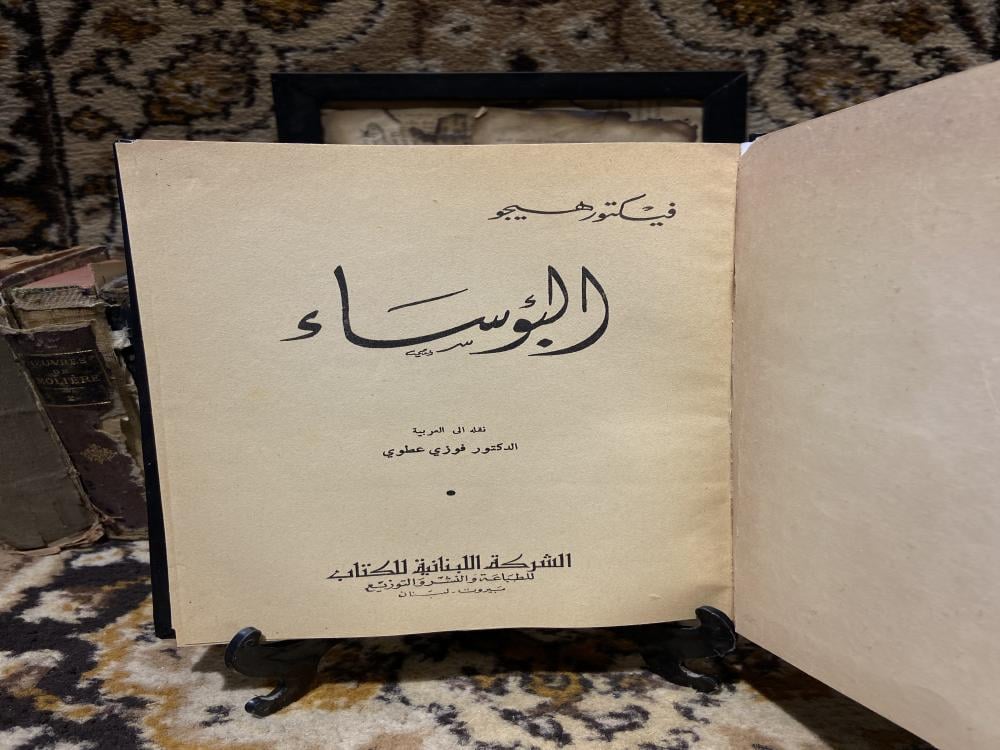 فيكتور هيجو
البؤساء
نقله الى العربية
الدكتور فوزي عطوي
الشركة اللبنانية للكتاب
للطباعة والنشر والتوزيع
بيروت - لبنان
OEUVRES
DE
MOLIÈRE
2